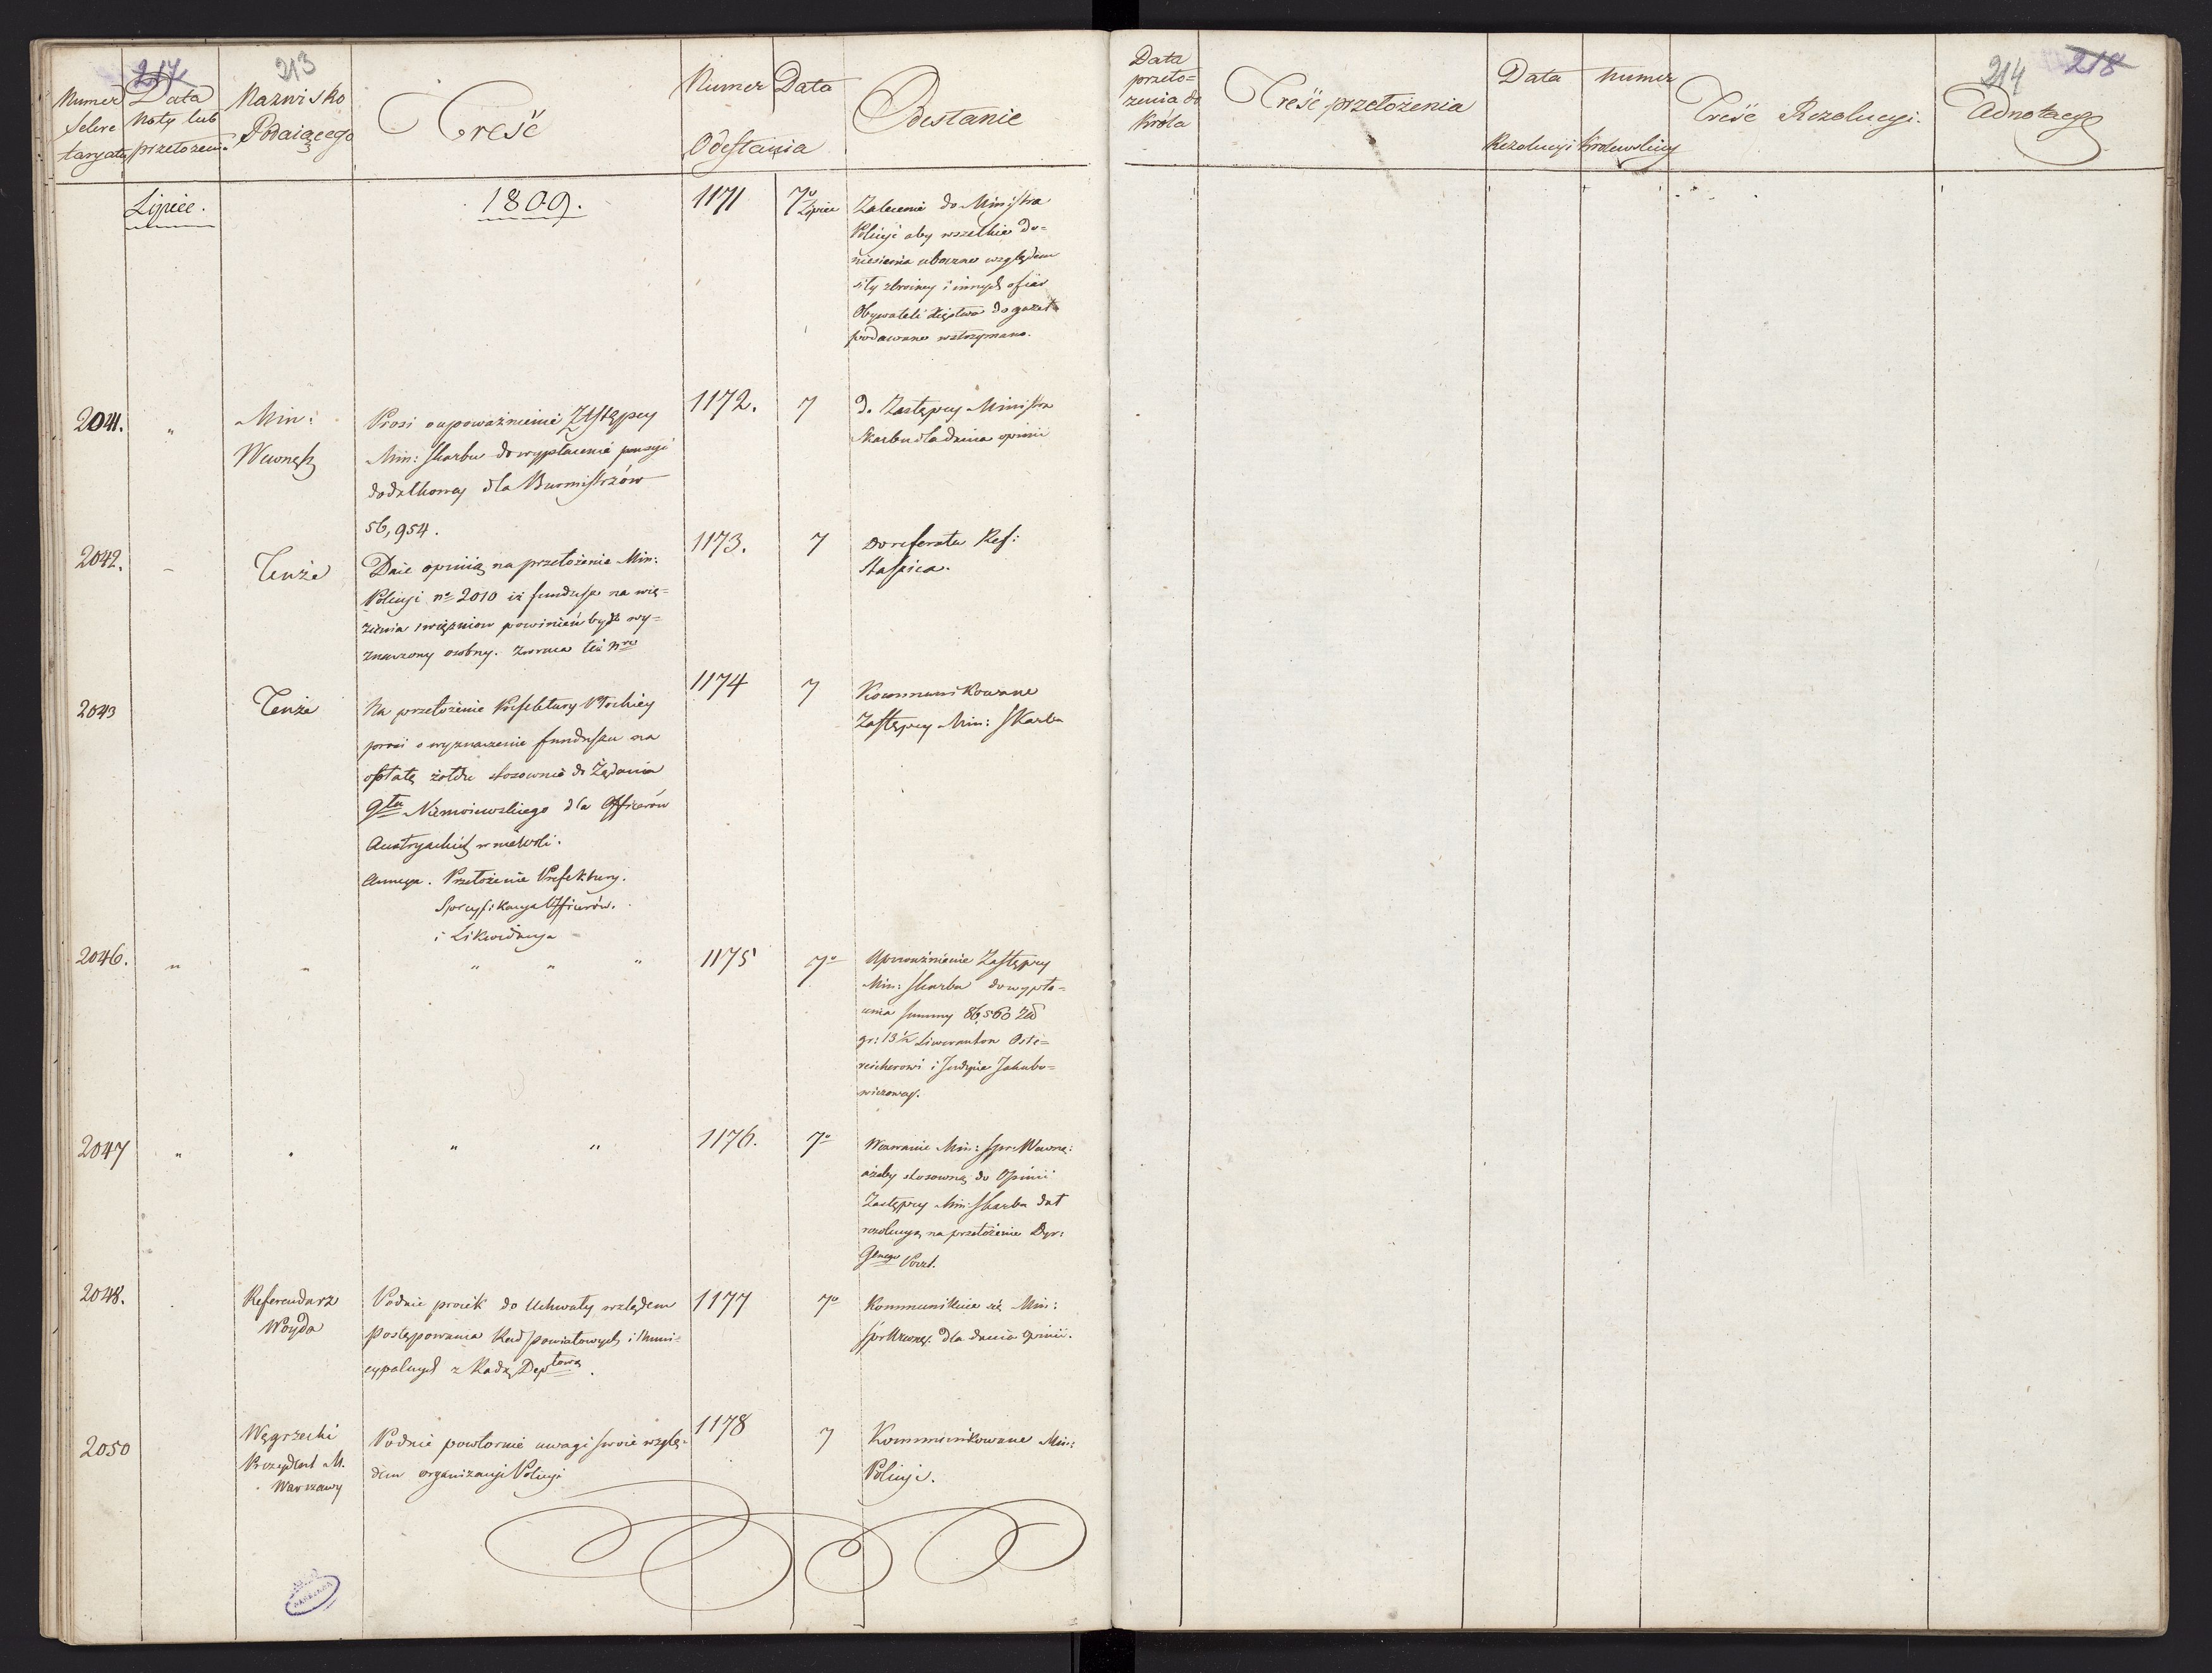 217
213
Numer Sekre taryatu
Data Noty lub przełożeni
Nazwisko Podaiącego
Treść
Numer Data
Odesłania
Odesłanie
Lipiec.
1809.
1171
7º Lipiec
Zalecenie do Ministra
Policyi aby wszelkie do=
niesienia uboczne względem
siły zbroiney i innych ofiar
Obywateli Xięstwa do gazet
podawane wstrzymano.
2041.
"
Min:
Wewnętz
Prosi o upoważnienie Zastępcy
Min: Skarbu do wypłacenia pensyi
dodatkowey dla Burmistrzów
56,954.
1172.
7
do Zastępcy Ministra
Skarbu dla dania opinii
2042.
Tenże
Daie opinią na przełożenie Min:
Policyi nº 2010 iż fundusz na wię=
zienia i więzniow powinien bydź wy=
znaczony osobny. Zwraca też Nro
1173.
7
do referatu Ref:
Staszica.
2043
Tenże
Na przełożenie Prefektury Płockiey
prosi o wyznaczenie funduszu na
opłatę żołdu stosownie do Żądania
Gła Niemoiewskiego dla Officerów
Austryackich w niewoli.
Annexa. Przełożenie Prefektury.
Specyfikacya Officerów.
i Likwidacya
1174
7
Kommunikowane
Zastępcy Min: Skarbu
2046.
"
"
" " "
1175
7º
Upoważnienie Zastępcy
Min: Skarbu do wypła=
cenia summy 86,560 Złº
gr: 13½ Liwerantom Oste=
reicherowi i Judycie Jakubo=
wiczowey.
2047
"
"
" "
1176.
7º
Wezwanie Min: Spr: Wewnę:
ażeby stosownie do Opinii
Zastępcy Min: Skarbu dał
rezolucyą na przełożenie Dyr:
Głnego Poczt.
2048.
Referendarz
Woyda
Podaie proiekt do Uchwały względem
postępowania Rad powiatowych i Muni=
cypalnych z Radą Deptową.
1177
7º
Kommunikuie się Min:
Spr: Wewnę: dla dania opinii.
2050
Węgrzecki
Prezydent M.
Warszawy
Podaie powtornie uwagi swoie wzglę=
dem organizacyi Policyi
1178
7
Kommunikowane Min:
Policyi.
214
218
Data przeło= zenia do Króla
Treść przełożenia
Data Numer
Rezolucyi Królewskiey
Treść Rezolucyi.
Adnotacye